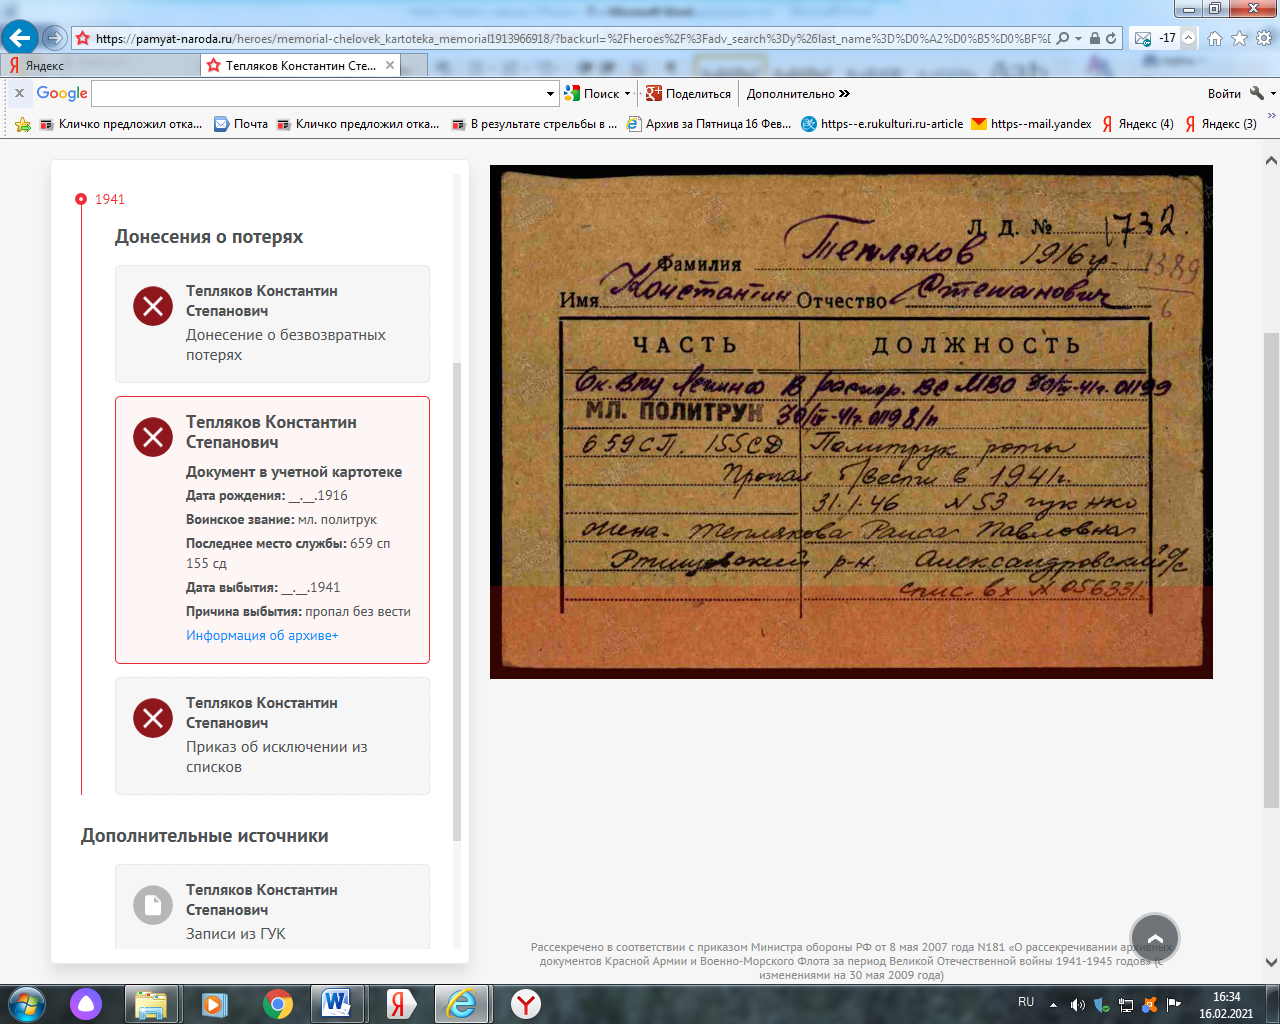 https://pamyat-naroda.ru/heroes/memorial-chelovek_kartoteka_memorial1913966918/?backurl=%2Fheroes%2F%3Fadv_search%3Dy%26last_name%3D%D0%A2%D0%B5%D0%BF%D
-17
Яндекс
Тепляков Константин Сте...
Google
Поиск
Поделиться
Дополнительно
Войти
Кличко предложил отка...
Почта
Кличко предложил отка...
В результате стрельбы в ...
Архив за Пятница 16 Фев...
https--e.rukulturi.ru-article
https--mail.yandex
Яндекс (4)
Яндекс (3)
1941
Донесения о потерях
Тепляков Константин
Степанович
Донесение о безвозвратных
потерях
Тепляков Константин
Степанович
Документ в учетной картотеке
Дата рождения: __.__.1916
Воинское звание: мл. политрук
Последнее место службы: 659 сп
155 сд
Дата выбытия: __.__.1941
Причина выбытия: пропал без вести
Информация об архиве+
Тепляков Константин
Степанович
Приказ об исключении из
списков
Дополнительные источники
Тепляков Константин
Степанович
Записи из ГУК
Л. Д. № 1732.
Фамилия Тепляков 1916 гр. 1389
6
Имя Константин Отчество Степанович
ЧАСТЬ ДОЛЖНОСТЬ
Ок. ВПУ Ленина В распор. ВС МВО 30/ 41г. 01199
МЛ. ПОЛИТРУК 30/ 41г. 01198/п
659 СП. 155 СД Политрук роты
Пропал б/вести в 1941г.
31.1.46 N 53 гук нко
жена - Теплякова Раиса Павловна
Ртищевский р-н. Александровский с/с
спис. вх N 05633
Рассекречено в соответствии с приказом Министра обороны РФ от 8 мая 2007 года N181 «О рассекречивании архивных
документов Красной Армии и Военно-Морского Флота за период Великой Отечественной войны 1941-1945 годов» (с
изменениями на 30 мая 2009 года)
RU
16:34
16.02.2021